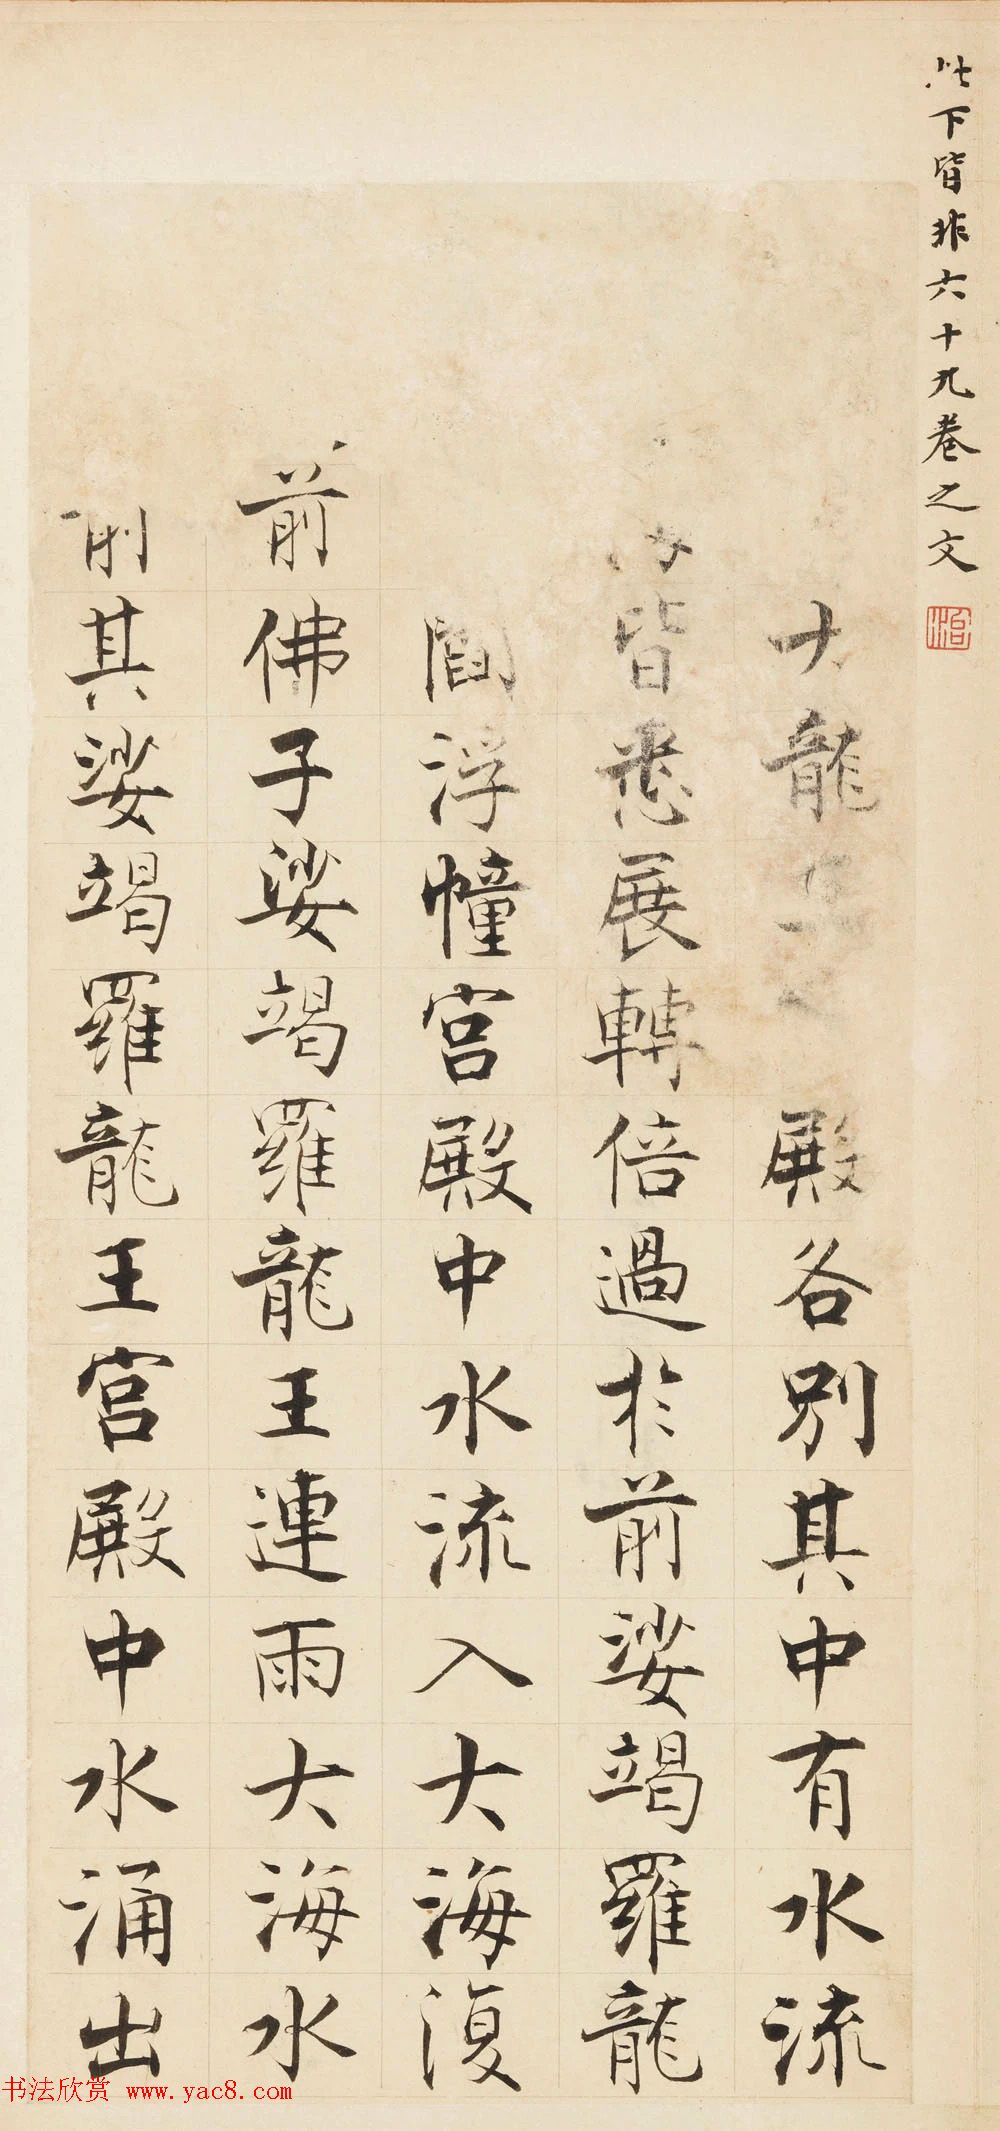 此下皆非六十九卷之文
大龍 殿各別其中有水流
皆悉展轉倍過於前娑竭羅龍
閻浮幢宮殿中水流入大海復
前佛子娑竭羅龍王連雨大海水
前其娑竭羅龍王宮殿中水涌出
书法欣赏 www.yac8.com